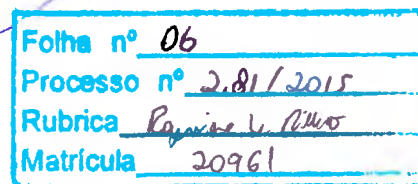 Folha nº 06
Processo nº 2.81/2015
Rubrica
Matrícula 20961